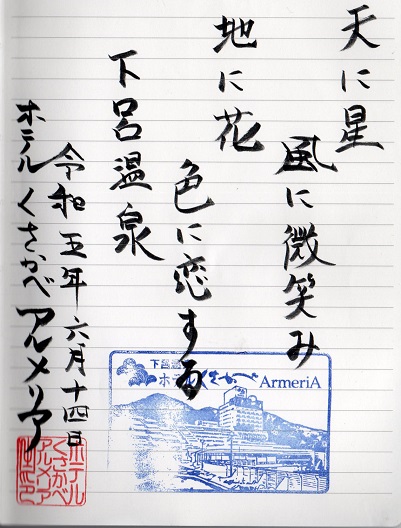 天に星
風に微笑み
地に花
色に恋する
下呂温泉
令和五年六月十四日
ホテルくさかべアルメリア
下呂温泉
ホテルくさかべ ArmeriA
ホテル
くさかべ
アルメリア